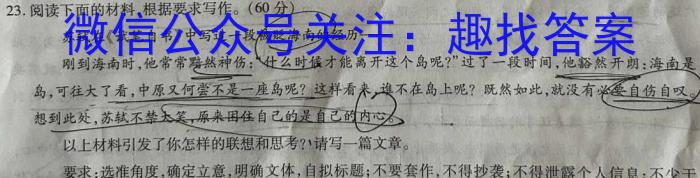 23. 阅读下面的材料,根据要求写作。(60分)
微信公众号关注：趣找答案
刚到海南时,他常常黯然神伤:“什么时候才能离开这个岛呢?”过了一段时间,他豁然开朗:海南是
岛,可往大了看,中原又何尝不是一座岛呢?这样看来,谁不在岛上呢?既然如此,就没有必要自伤自叹。
想到此处,苏轼不禁大笑,原来困住自己的是自己的内心。
以上材料引发了你怎样的联想和思考?请写一篇文章。
要求:选准角度,确定立意,明确文体,自拟标题;不要套作,不得抄袭;不得泄露个人信息;不少于